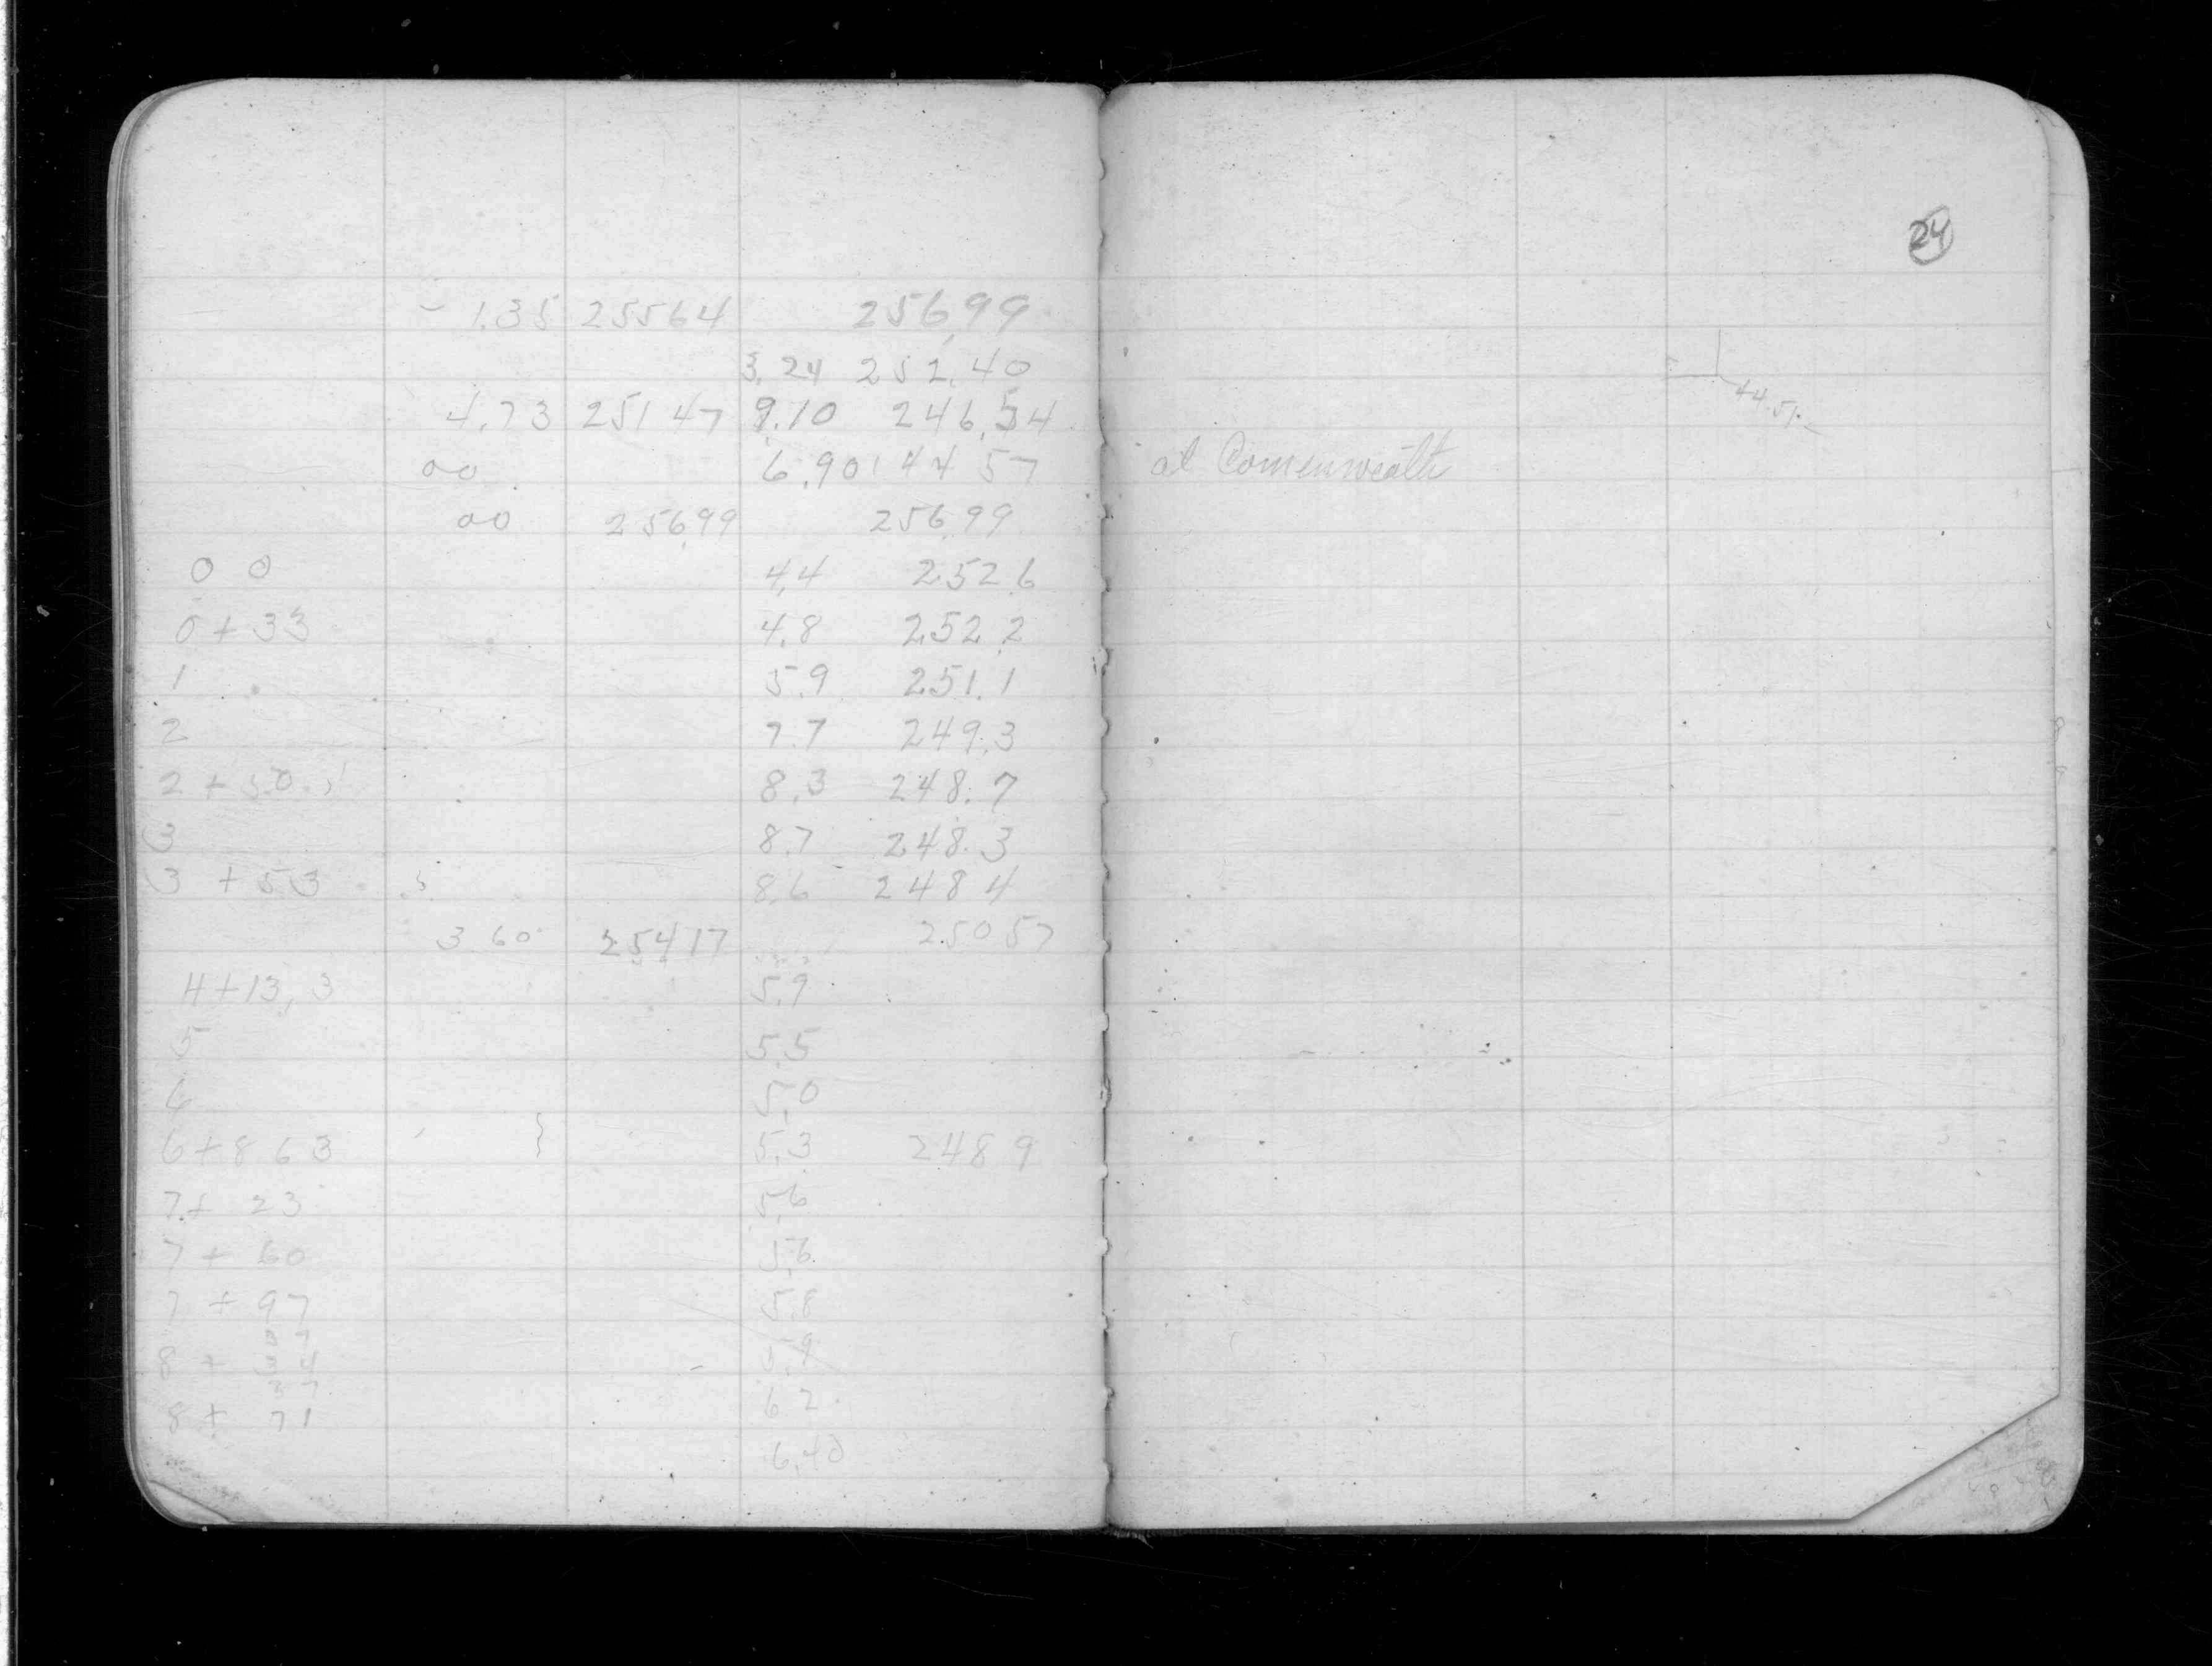 24
- 1.35 25564 256,99
3.24 252.40
4.73 25147 9.10 246.54
44.51
00 6.90 144 57 at Comenweath
00 256,99 256,99
0 0 4,4 252 6
0 + 33 4.8 252.2
1 5.9 251.1
2 7.7 249.3
2 + 50. 8,3 248.7
3 8.7 248.3
3 + 53 8,6 248 4
3 60 254 17 250 57
4+13,3 5,9
5 5.5
6 5,0
6+8 6 3 5,3 248 9
7+ 23 5,6
7 + 60 5,6
7 + 97 5.8
8 + 34 5,9
37
8 + 71 6 2
6,40